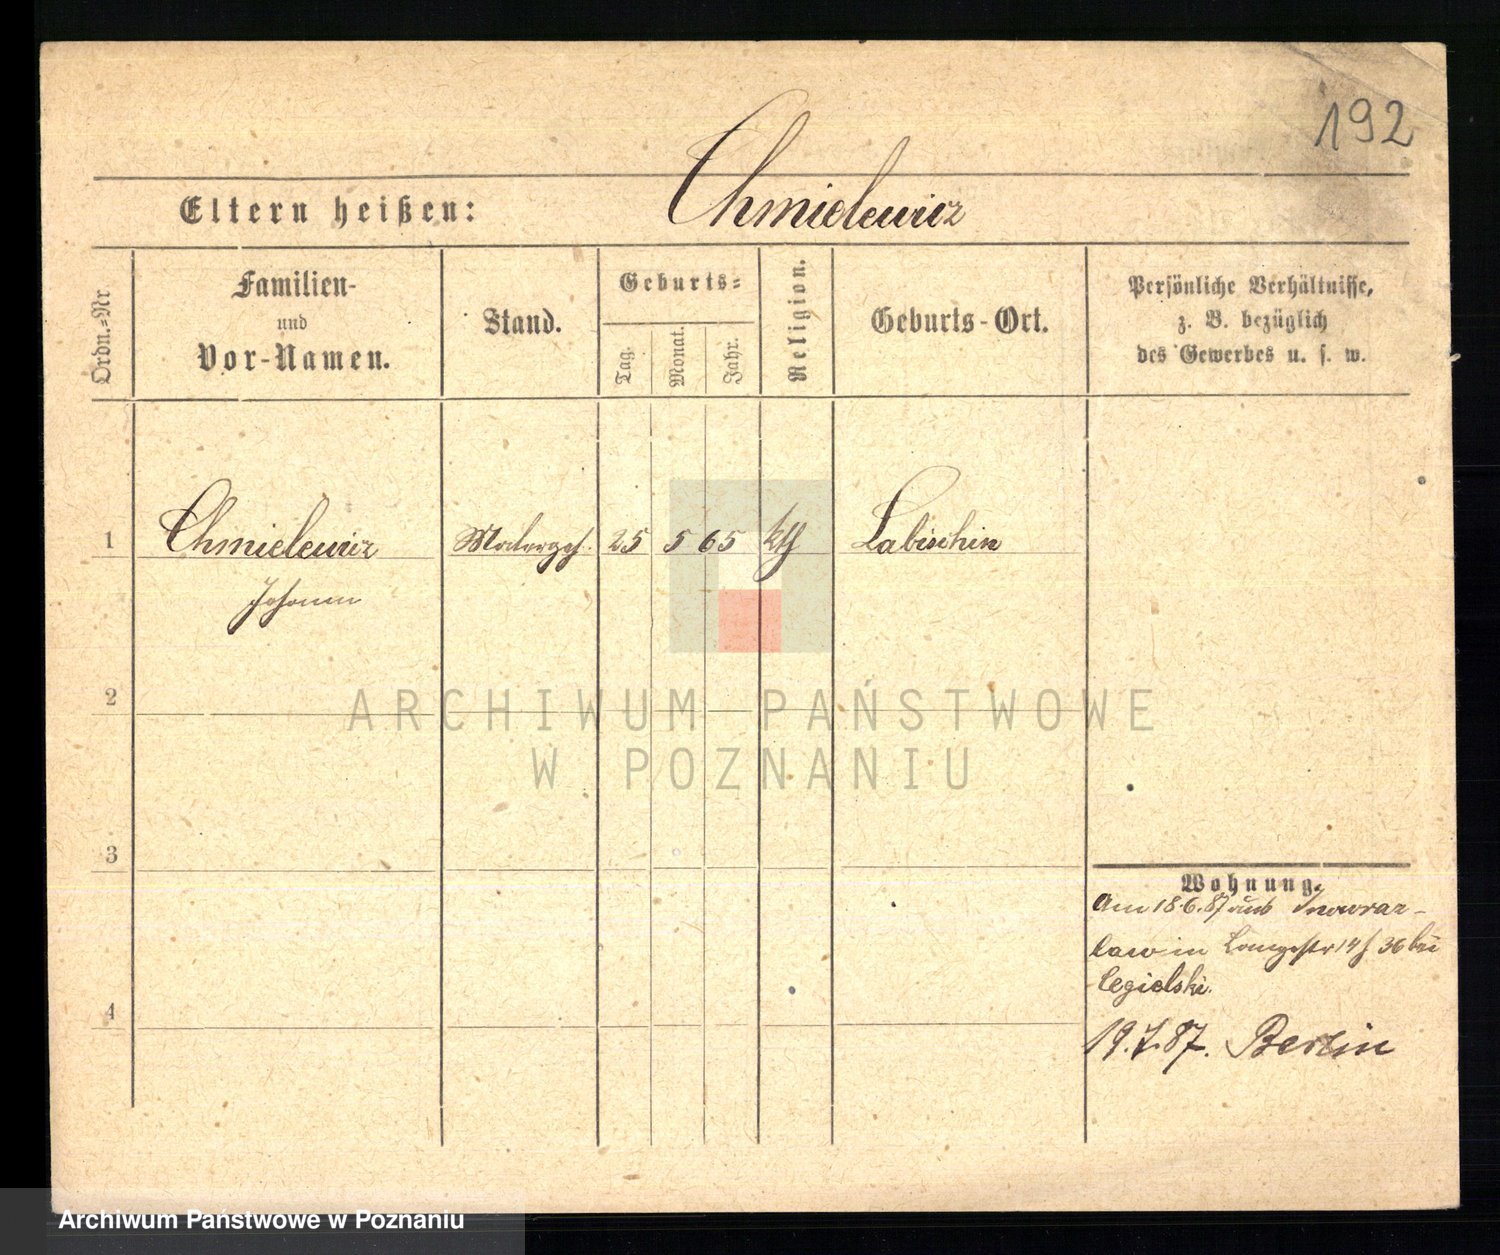 192
Chmielewicz
Eltern heißen:
Ordn.-Nr
Familien-
und
Vor-Namen.
Stand.
Geburts-
Tag.
Monat.
Jahr.
Religion.
Geburts-Ort.
Persönliche Verhältnisse,
z. B. bezüglich
des Gewerbes u. s. w.
1 Chmielewicz Malergeh. 25 5 65 kth Labischin
Johann
2
ARCHIWUM PAŃSTWOWE
W POZNANIU
3
Wohnung.
Am 18.6.87 aus Inowraz-
law in Langestr 14 36 bei
Cegielski.
4
19.7.87. Berlin
Archiwum Państwowe w Poznaniu